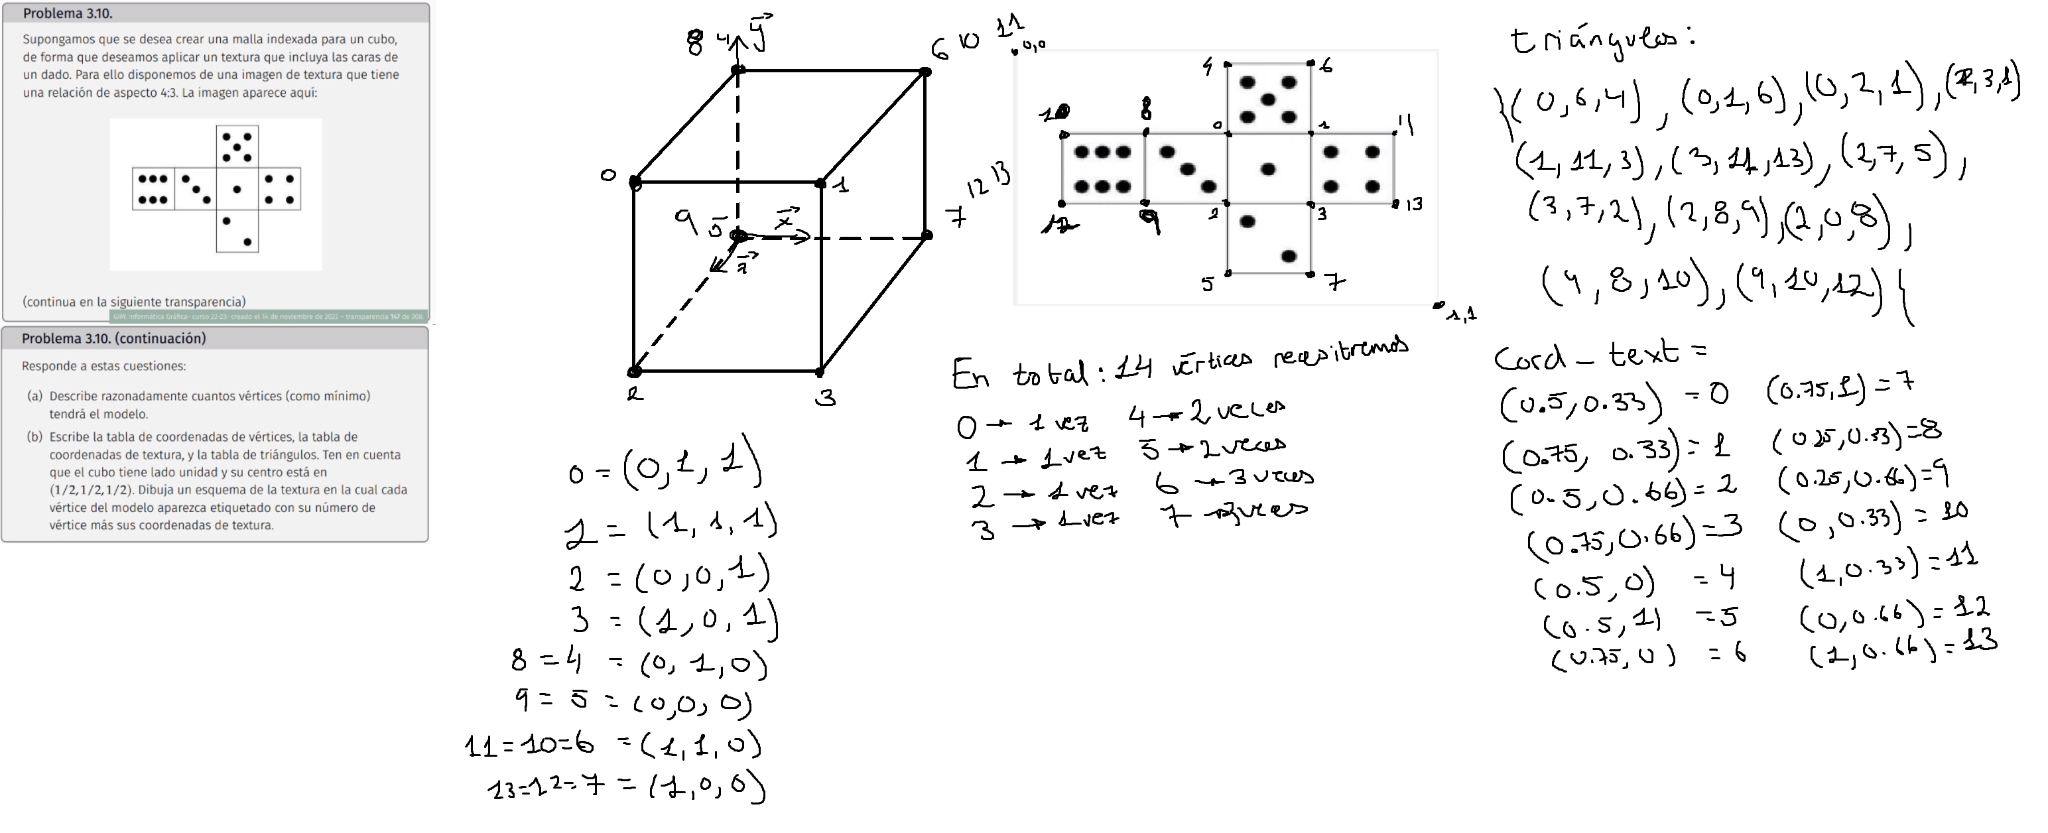 Problema 3.10.
Supongamos que se desea crear una malla indexada para un cubo,
de forma que deseamos aplicar un textura que incluya las caras de
un dado. Para ello disponemos de una imagen de textura que tiene
una relación de aspecto 4:3. La imagen aparece aquí:
(continua en la siguiente transparencia)
GIM: Informática Gráfica- curso 22-23- creado el 14 de noviembre de 2022 – transparencia 147 de 208.
Problema 3.10. (continuación)
Responde a estas cuestiones:
(a) Describe razonadamente cuantos vértices (como mínimo)
tendrá el modelo.
(b) Escribe la tabla de coordenadas de vértices, la tabla de
coordenadas de textura, y la tabla de triángulos. Ten en cuenta
que el cubo tiene lado unidad y su centro está en
(1/2,1/2,1/2). Dibuja un esquema de la textura en la cual cada
vértice del modelo aparezca etiquetado con su número de
vértice más sus coordenadas de textura.
8 4 y
6 10 11
0
1
9 5 x
z
7 12 13
2
3
0 = (0,1,1)
1 = (1,1,1)
2 = (0,0,1)
3 = (1,0,1)
8 = 4 = (0,1,0)
9 = 5 = (0,0,0)
11=10=6 = (1,1,0)
13=12=7 = (1,0,0)
0,0
4 6
10 8 0 1 11
12 9 2 3 13
5 7
1,1
En total: 14 vértices necesitremos
0 → 1 vez 4 → 2 veces
1 → 1 vez 5 → 2 veces
2 → 1 vez 6 → 3 veces
3 → 1 vez 7 → 3 veces
triángulos:
{(0,6,4), (0,1,6), (0,2,1), (2,3,1)
(1,11,3), (3,11,13), (2,7,5),
(3,7,2), (2,8,9), (2,0,8),
(9,8,10), (9,10,12)}
Cord_text =
(0.5,0.33) = 0 (0.75,1) = 7
(0.75, 0.33) = 1 (0.25,0.33) = 8
(0.5,0.66) = 2 (0.25,0.66) = 9
(0.75,0.66) = 3 (0,0.33) = 10
(0.5,0) = 4 (1,0.33) = 11
(0.5,1) = 5 (0,0.66) = 12
(0.75,0) = 6 (1,0.66) = 13